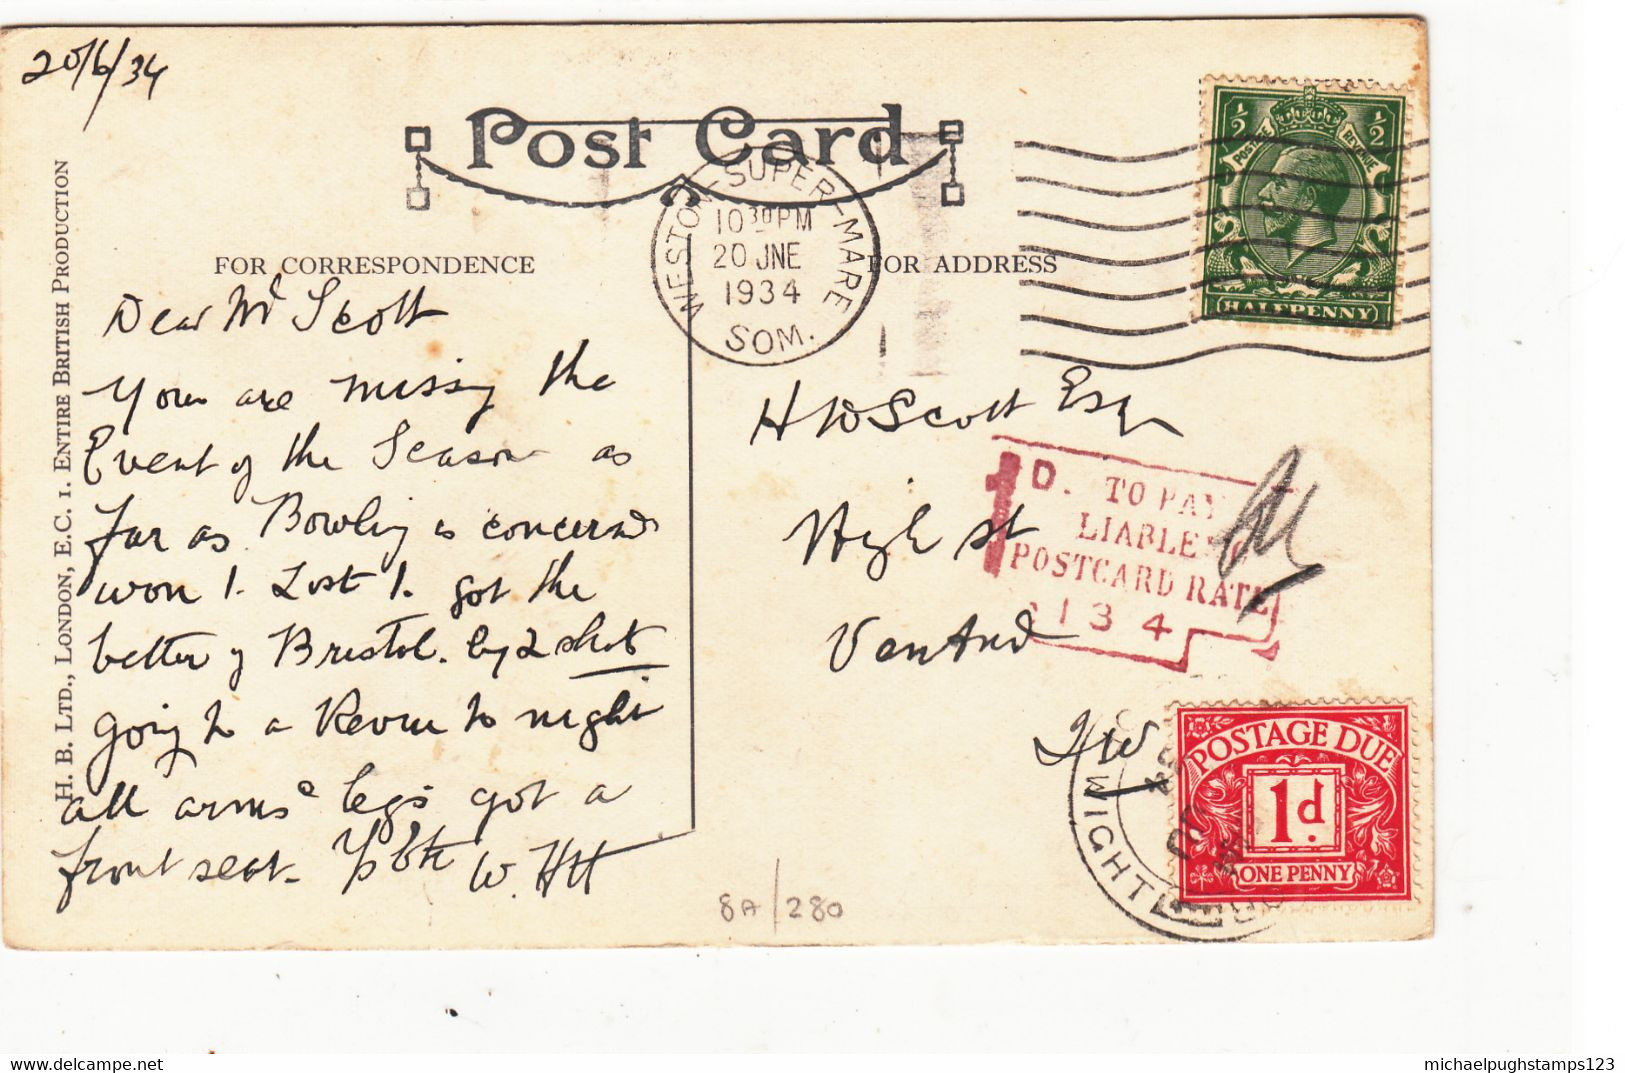 20/6/34
Post Card
FOR CORRESPONDENCE
FOR ADDRESS
H. B. LTD., LONDON, E.C. 1. ENTIRE BRITISH PRODUCTION
WESTON-SUPER-MARE
10 30 PM
20 JNE
1934
SOM.
½ ½
POSTAGE REVENUE
HALFPENNY
Dear Mr Scott
You are missing the
Event of the Season as
far as Bowling is concerned
won 1. Lost 1. got the
better of Bristol. by 2 shots
going to a Revue to night
all arms & legs got a
front seat.
H W Scott Esq
High St
Ventnor
I W
1D. TO PAY
LIABLE
POSTCARD RATE
134
POSTAGE DUE
1d.
ONE PENNY
WIGHT
8A/280
michaelpughstamps123